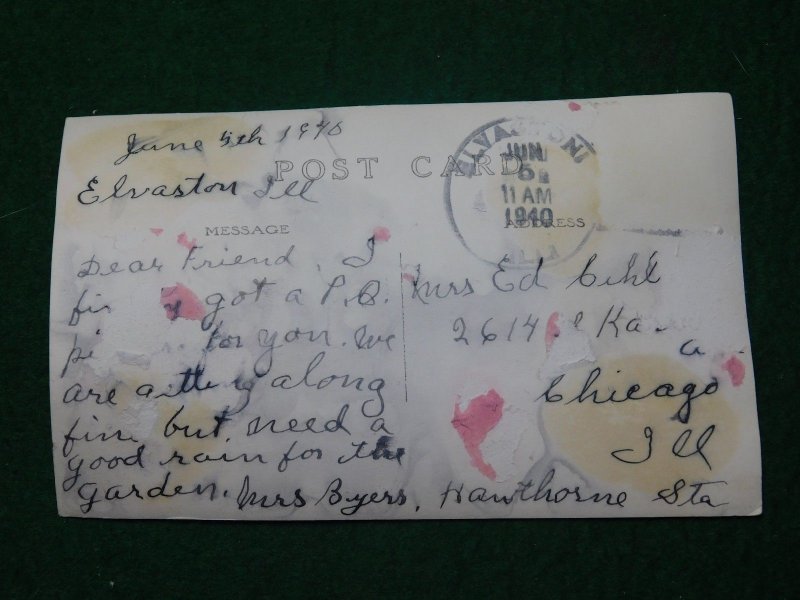 June 5th 1940
Elvaston Ill
POST CARD
ELVASTON
JUN
5
11 AM
1940
ILL
MESSAGE
ADDRESS
Dear Friend, I
got a P.C.
for you. We
are along
fine but need a
good rain for the
garden. Mrs Byers,
Mrs Ed Cihl
2614
Chicago
Ill
Hawthorne Sta